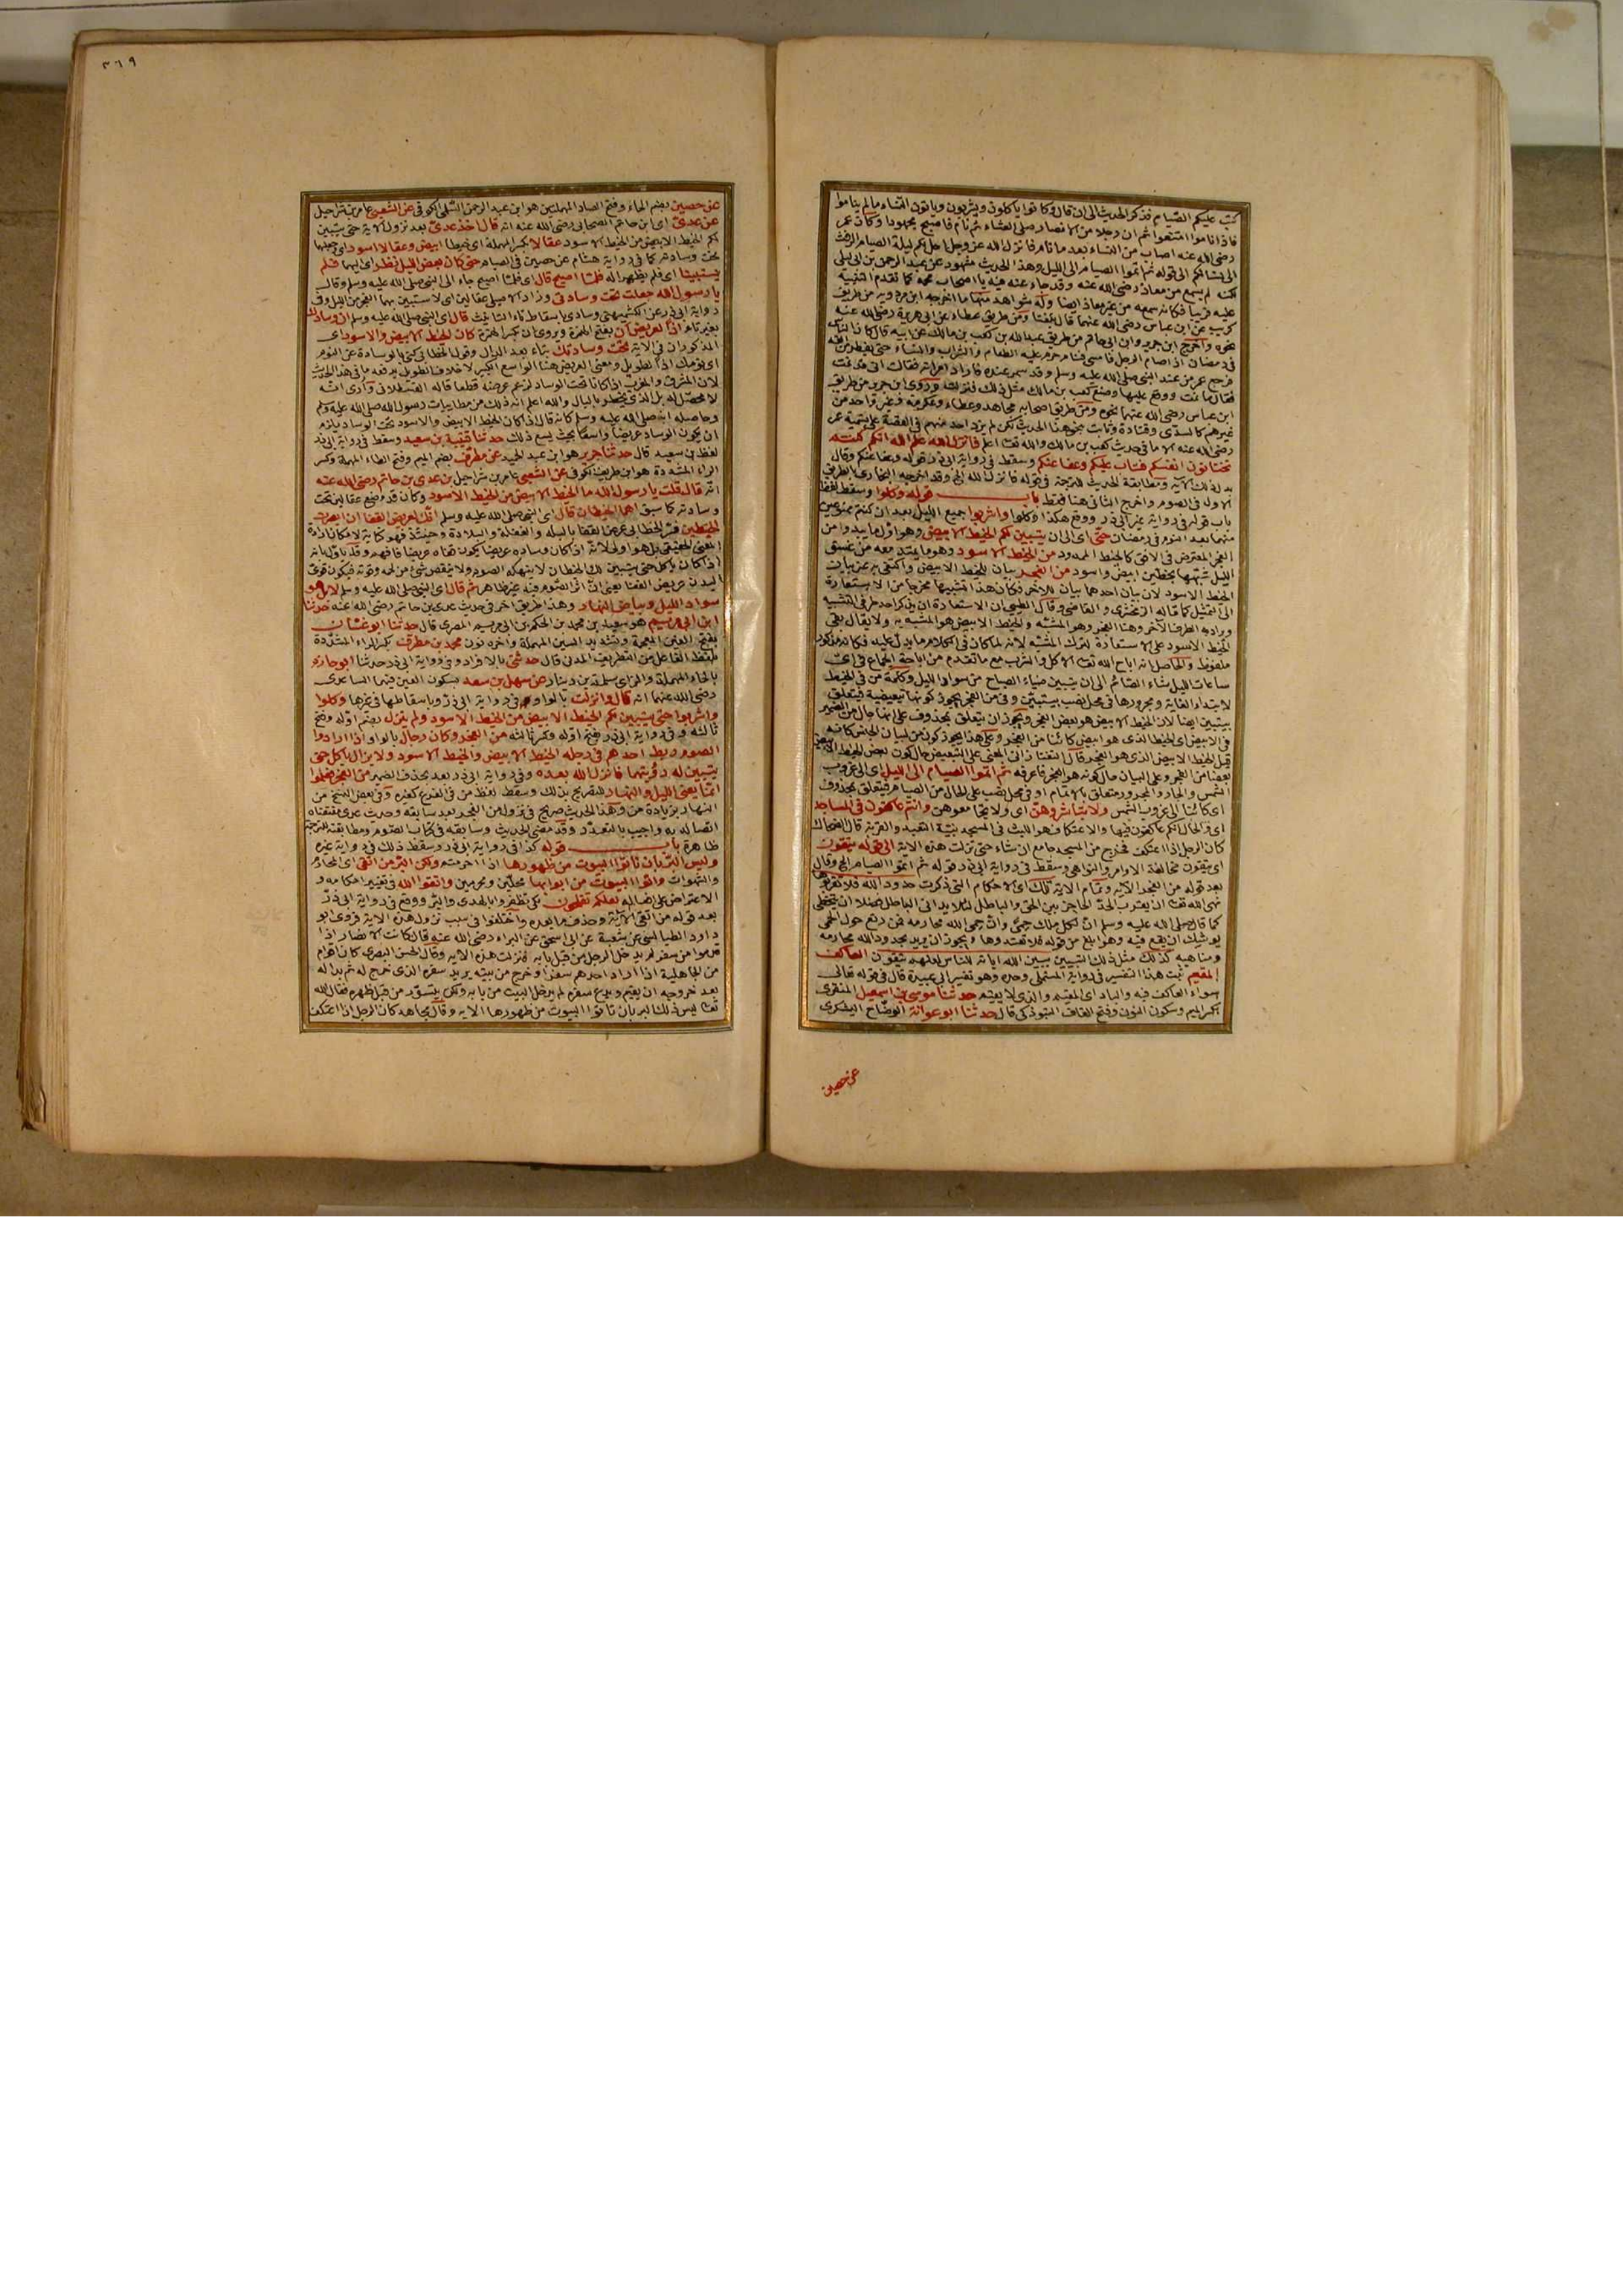 كتب عليكم الصيام فذكر الحديث الى ان قال وكانوا ياكلون ويشربون وياتون النساء مالم يناموا
فاذا ناموا امتنعوا ثم ان رجلا من الانصار صلى العشاء ثم نام فاصبح مجهودا وكان عمر
رضي الله عنه اصاب من النساء بعد ما نام فانزل الله عز وجل احل لكم ليلة الصيام الرفث
الى نسائكم الى قوله ثم اتموا الصيام الى الليل وهذا الحديث مشهور عن عبد الرحمن بن ابي ليلى
لكنه لم يسمع من معاذ رضي الله عنه وقد جاء عنه فيه يا اصحاب محمد كما تقدم التنبيه
عليه قريبا فكانه سمعه من غير معاذ ايضا وله شواهد منها ما اخرجه ابن مردويه من طريق
كريب عن ابن عباس رضي الله عنهما قال بلغنا ومن طريق عطاء عن ابي هريرة رضي الله عنه
نحوه واخرج ابن جرير وابن ابي حاتم من طريق عبد الله بن كعب بن مالك عن ابيه قال كان الناس
في رمضان اذا صام الرجل فامسى فنام حرم عليه الطعام والشراب والنساء حتى يفطر من الغد
فرجع عمر من عند النبي صلى الله عليه وسلم وقد سمر عنده فاراد امراته فقالت اني قد نمت
فقال ما نمت ووقع عليها وصنع كعب بن مالك مثل ذلك فنزلت وروى ابن جرير من طريق
ابن عباس رضي الله عنهما نحوه ومن طريق اصحابه مجاهد وعطاء وعكرمة وغير واحد من
غيرهم كالسدى وقتادة وثابت نحو هذا الحديث لكن لم يزد احد منهم في القصة على تسمية عمر
رضي الله عنه الا ما في حديث كعب بن مالك والله تعا اعلم فانزل الله علم الله انكم كنتم
تختانون انفسكم فتاب عليكم وعفا عنكم وسقط في رواية ابي ذر قوله وعفا عنكم وقال
بدل ذلك الاية ومطابقة الحديث للترجمة في قوله فانزل الله الخ وقد اخرجه البخاري بالطريق
الاول في الصوم واخرج الثاني هنا فقط باب قوله وكلوا وسقط لفظ
باب قوله في رواية غير ابي ذر ووقع هكذا وكلوا واشربوا جميع الليل بعد ان كنتم ممنوعين
منهما بعد النوم في رمضان حتى اى الى ان يتبين لكم الخيط الابيض وهو اول ما يبدو من
الفجر المعترض في الافق كالخيط الممدود من الخيط الاسود وهو ما يمتد معه من غبش
الليل شبها بخطين ابيض واسود من الفجر بيان للخيط الابيض واكتفى به عن بيان
الخيط الاسود لان بيان احدهما بيان للاخر فكان هذا التشبيها مخرجا من الاستعارة
الى التمثيل كما قاله الزمخشرى والقاضي وقال الطيبي ان الاستعارة ان يذكر احد طرفي التشبيه
ويراد به الطرف الآخر وهنا الفجر وهو المشبه والخيط الابيض هو المشبه به ولا يقال بقي
الخيط الاسود على الاستعارة لترك المشبه لانه لما كان في الكلام ما يدل عليه فكانه مذكور
ملفوظ والحاصل انه اباح الله تعا الاكل والشرب مع ما تقدم من اباحة الجماع في اى
ساعات الليل شاء الصائم الى ان يتبين ضياء الصباح من سواد الليل وكلمة من في الخيط
لابتداء الغاية ومجرورها في محل نصب بيتبين وفي من الفجر يجوز كونها تبعيضية فيتعلق
بيتبين ايضا لان الخيط الابيض هو بعض الفجر ويجوز ان يتعلق بمحذوف على انها حال من الضمير
في الابيض اى الخيط الذى هو ابيض كائنا من الفجر وعلى هذا يجوز كون من لبيان الجنس كانه
قيل الخيط الابيض الذى هو الفجر قال التفتازاني المعنى على التبعيض حال كون بعض الخيط الابيض
بعضا من الفجر وعلى البيان حال كونه هو الفجر فاعرفه ثم اتموا الصيام الى الليل اى الى غروب
الشمس والجار والمجرور متعلق بالاتمام او في محل نصب على الحال من الصيام فيتعلق بمحذوف
اى كائنا الى غروب الشمس ولا تباشروهن اى ولا تجامعوهن وانتم عاكفون في المساجد
اى والحال انكم عاكفون فيها والاعتكاف هو اللبث في المسجد بنية التعبد والقربة قال الضحاك
كان الرجل اذا اعتكف فخرج من المسجد جامع ان شاء حتى نزلت هذه الاية الى قوله يتقون
اى يتقون مخالفة الاوامر والنواهي وسقط في رواية ابي ذر قوله ثم اتموا الصيام الخ وقال
بعد قوله من الفجر الآية وتمام الاية تلك اى الاحكام التي ذكرت حدود الله فلا تقربوها
نهى الله تعا ان يقترب الحد الحاجز بين الحق والباطل لئلا يدانى الباطل فضلا ان يتخطى
كما قال صلى الله عليه وسلم ان لكل ملك حمى وان حمى الله محارمه فمن رتع حول الحمى
يوشك ان يقع فيه وهو ابلغ من قوله فلا تعتدوها ويجوز ان يريد بحدود الله محارمه
ومناهيه كذلك مثل ذلك التبيين يبين الله اياته للناس لعلهم يتقون العاكف
المقيم ثبت هذا التفسير في رواية المستملى وحده وهو تفسير ابي عبيدة قال في قوله تعالى
سواء العاكف فيه والباد اى المقيم والذى لا يقيم حدثنا موسى بن اسمعيل المنقرى
بكسر الميم وسكون النون وفتح القاف التبوذكي قال حدثنا ابو عوانة الوضاح اليشكرى
عن حصين
٣٦٩
عن حصين بضم الحاء وفتح الصاد المهملتين هو ابن عبد الرحمن السلمى الكوفي عن الشعبي عامر بن شراحيل
عن عدى اى ابن حاتم الصحابي رضي الله عنه انه قال اخذ عدى بعد نزول الاية حتى يتبين
لكم الخيط الابيض من الخيط الاسود عقالا بكسر المهملة اى خيطا ابيض وعقالا اسود اى وجعلهما
تحت وسادته كما في رواية هشام عن حصين في الصيام حتى كان بعض الليل نظر اى اليهما فلم
يستبينا اى فلم يظهرا له فلما اصبح قال اى فلما اصبح جاء الى النبي صلى الله عليه وسلم وقال
يا رسول الله جعلت تحت وسادتي وزاد الاصيلي عقالين اى لاستبين بهما الفجر من الليل وفي
رواية ابي ذر عن الكشميهني وسادي باسقاط تاء التانيث قال اى النبي صلى الله عليه وسلم ان وسادك
بغير تاء اذا لعريض ان بفتح الهمزة ويروى ان بكسر الهمزة كان الخيط الابيض والاسود اى
المذكوران في الاية تحت وسادتك بتاء بعد الدال وقول الخطابي كنى بالوسادة عن النوم
اى نومك اذا لطويل ومعنى العريض هنا الواسع الكبير لاخلاف الطويل يدفعه ما في هذا الحديث
لان المشرق والمغرب اذا كانا تحت الوساد لزم عرضه قطعا قاله القسطلاني وارى انه
لا محصل له بل الذى يخطر بالبال والله اعلم انه ذلك من مطايبات رسول الله صلى الله عليه وسلم
وحاصله انه صلى الله عليه وسلم كانه قال اذا كان الخيط الابيض والاسود تحت الوساد يلزم
ان يكون الوساد عريضا واسعا بحيث يسع ذلك حدثنا قتيبة بن سعيد وسقط في رواية ابي ذر
لفظ بن سعيد قال حدثنا جرير هو ابن عبد الحميد عن مطرف بضم الميم وفتح الطاء المهملة وكسر
الراء المشددة هو ابن طريف الكوفي عن الشعبي عامر بن شراحيل عن عدى بن حاتم رضي الله عنه
انه قال قلت يا رسول الله ما الخيط الابيض من الخيط الاسود وكان قد وضع عقالين تحت
وسادته كما سبق اهما الخيطان قال اى النبي صلى الله عليه وسلم انك لعريض القفا ان ابصرت
الخيطين فسر الخطابي عرض القفا بالبله والغفلة والبلادة وحينئذ فهو كناية لامكان ارادة
المعنى الحقيقي بل هو اولى لانه اذا كان وساده عريضا يكون قفاه عريضا فافهم وقد ياول بانه
اذا كان ياكل حتى يتبين لك الخيطان لا ينهكه الصوم ولا ينقص شئ من لحمه وقوته فيكون قوى
البدن عريض القفا يعني ان اثر الصوم فيه غير ظاهر ثم قال اى النبي صلى الله عليه وسلم لا بل هو
سواد الليل وبياض النهار وهذا طريق اخر في حديث عدى بن حاتم رضي الله عنه حدثنا
ابن ابي مريم هو سعيد بن محمد بن الحكم بن ابي مريم المصرى قال حدثنا ابو غسان
بفتح الغين المعجمة وتشديد السين المهملة واخره نون محمد بن مطرف بكسر الراء المشددة
بلفظ الفاعل من التطريف المدني قال حدثني بالافراد وفي رواية ابي ذر حدثنا ابو حازم
بالحاء المهملة والزاى سلمة بن دينار عن سهل بن سعد بسكون العين فيهما الساعدى
رضي الله عنهما انه قال وانزلت بالواو في رواية ابي ذر وباسقاطها في غيرها وكلوا
واشربوا حتى يتبين لكم الخيط الابيض من الخيط الاسود ولم ينزل بضم اوله وفتح
ثالثه وفي رواية ابي ذر بفتح اوله وكسر ثالثه من الفجر وكان رجال بالواو اذا ارادوا
الصوم ربط احدهم في رجله الخيط الابيض والخيط الاسود ولا يزال ياكل حتى
يتبين له رؤيتهما فانزل الله بعده وفي رواية ابي ذر بعد بحذف الضمير من الفجر فعلموا
انما يعني الليل والنهار للتصريح بذلك وسقط لفظ من في الفرع كغيره وفي بعض النسخ من
النهار بزيادة من وهذا الحديث صريح في نزول من الفجر بعد سابقه وحديث عدى مقتضاه
اتصاله به واجيب بالتعدد وقد مضى الحديث وسابقه في كتاب الصوم ومطابقته للترجمة
ظاهرة باب قوله كذا في رواية ابي ذر وسقط ذلك في رواية غيره
وليس البر بان تاتوا البيوت من ظهورها اذا احرمتم ولكن البر من اتقى اى المحارم
والشهوات واتوا البيوت من ابوابها محلين ومحرمين واتقوا الله في تغيير احكامه و
الاعتراض على افعاله لعلكم تفلحون لكى تظفروا بالهدى والبر ووقع في رواية ابي ذر
بعد قوله من اتقى الاية وحذف ما بعده واختلفوا في سبب نزول هذه الاية فروى ابو
داود الطيالسي عن شعبة عن ابي اسحق عن البراء رضي الله عنه قال كانت الانصار اذا
قدموا من سفر لم يدخل الرجل من قبل بابه فنزلت هذه الاية وقال الحسن البصرى كان اقوام
من الجاهلية اذا اراد احدهم سفرا وخرج من بيته يريد سفره الذى خرج له ثم بدا له
بعد خروجه ان يقيم ويدع سفره لم يدخل البيت من بابه ولكن يتسور من قبل ظهره فقال الله
تعا ليس ذلك البر بان تاتوا البيوت من ظهورها الاية وقال مجاهد كان الرجل اذا اعتكف